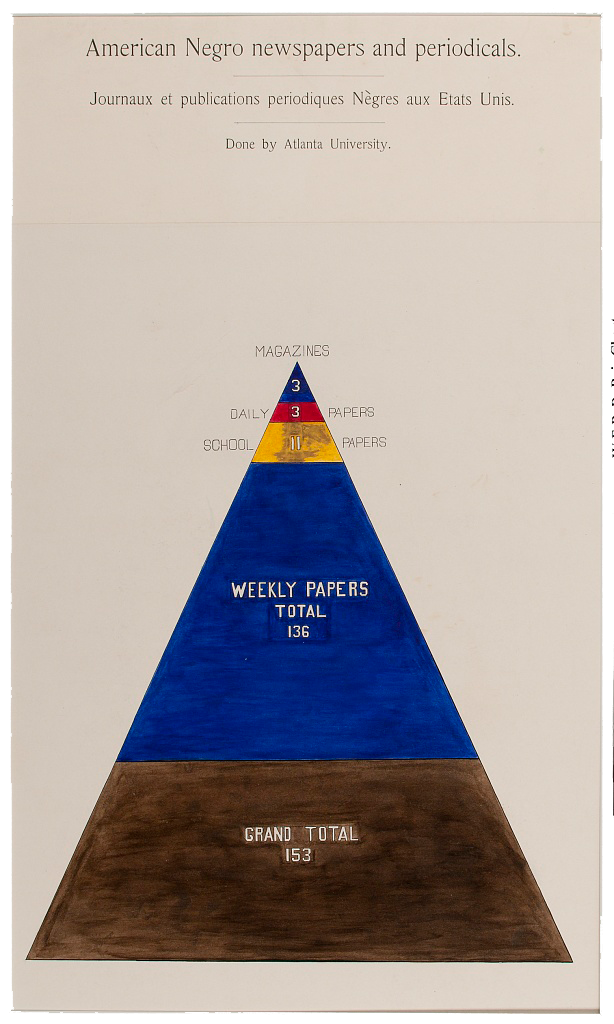 American Negro newspapers and periodicals.
Journaux et publications periodiques Nègres aux Etats Unis.
Done by Atlanta University.
MAGAZINES
3
DAILY 3 PAPERS
SCHOOL 11 PAPERS
WEEKLY PAPERS
TOTAL
136
GRAND TOTAL
153